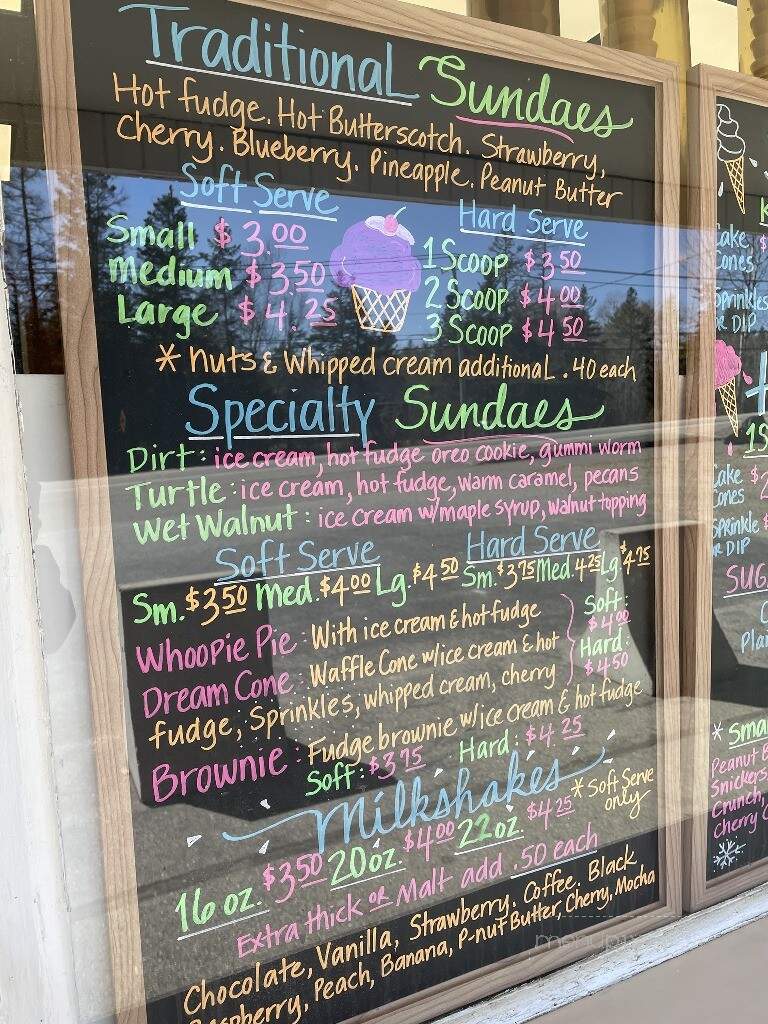 Traditional Sundaes
Hot fudge. Hot Butterscotch. Strawberry,
Cherry. Blueberry. Pineapple. Peanut Butter
Soft Serve
Hard Serve
Small $3.00
1 Scoop $3.50
Medium $3.50
2 Scoop $4.00
Large $4.25
3 Scoop $4.50
* nuts & Whipped cream additional .40 each
Specialty Sundaes
Dirt: ice cream, hot fudge oreo cookie, gummi worm
Turtle: ice cream, hot fudge, warm caramel, pecans
Wet Walnut: ice cream w/maple syrup, walnut topping
Soft Serve
Hard Serve
Sm. $3.50 Med. $4.00 Lg. $4.50 Sm. $3.75 Med. 4.25 Lg $4.75
Whoopie Pie: With ice cream & hot fudge
Dream Cone: Waffle Cone w/ice cream & hot
fudge, Sprinkles, whipped cream, cherry
Soft:
$4.00
Hard:
$4.50
Brownie: Fudge brownie w/ice cream & hot fudge
Soft: $3.75 Hard: $4.25
Milkshakes
* Soft Serve
only
16 oz. $3.50 20 oz. $4.00 22 oz. $4.25
Extra thick or Malt add .50 each
Chocolate, Vanilla, Strawberry. Coffee, Black
Raspberry, Peach, Banana, P-nut Butter, Cherry, Mocha
Cake $
Cones
Sprinkles
or DIP
Cake $
Cones
Sprinkle $
or DIP
* Sma
Peanut B
Snickers
Crunch,
Cherry C